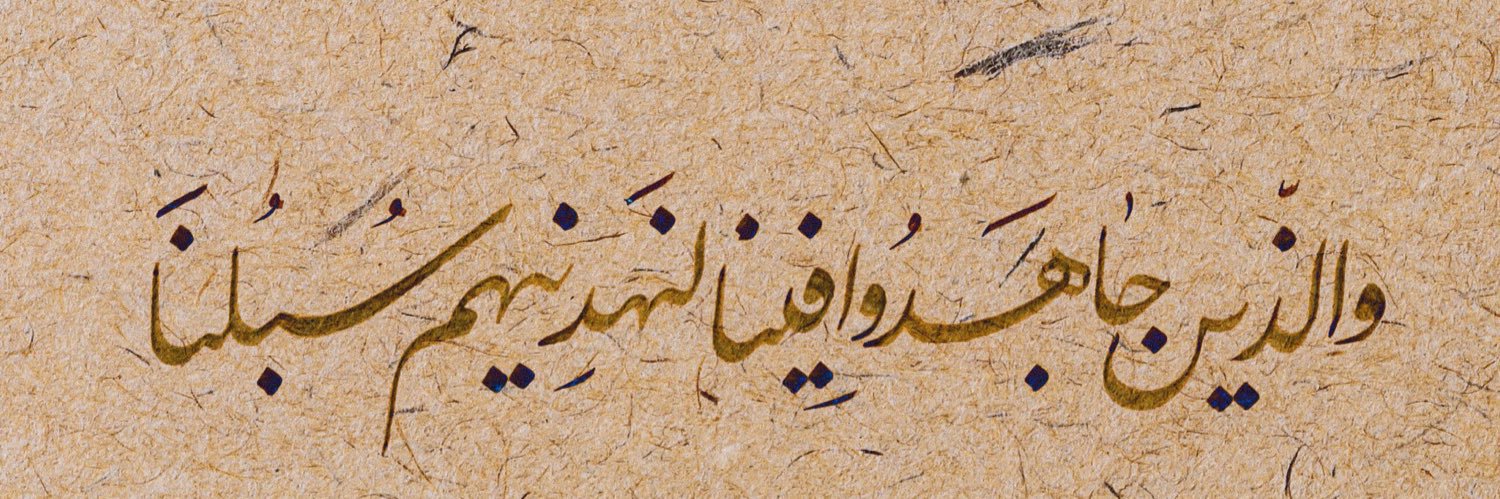 والّذين جاهَدُوا فِينا لنَهدِينهم سُبُلنَا